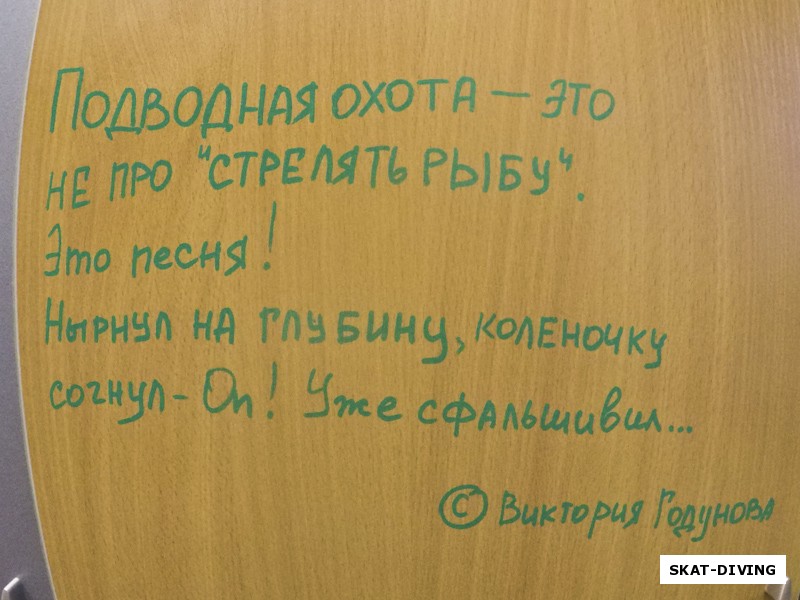 ПОДВОДНАЯ ОХОТА — ЭТО
НЕ ПРО "СТРЕЛЯТЬ РЫБУ".
Это песня!
Нырнул на глубину, коленочку
согнул - Оп! Уже сфальшивил...
© Виктория Годунова
SKAT-DIVING